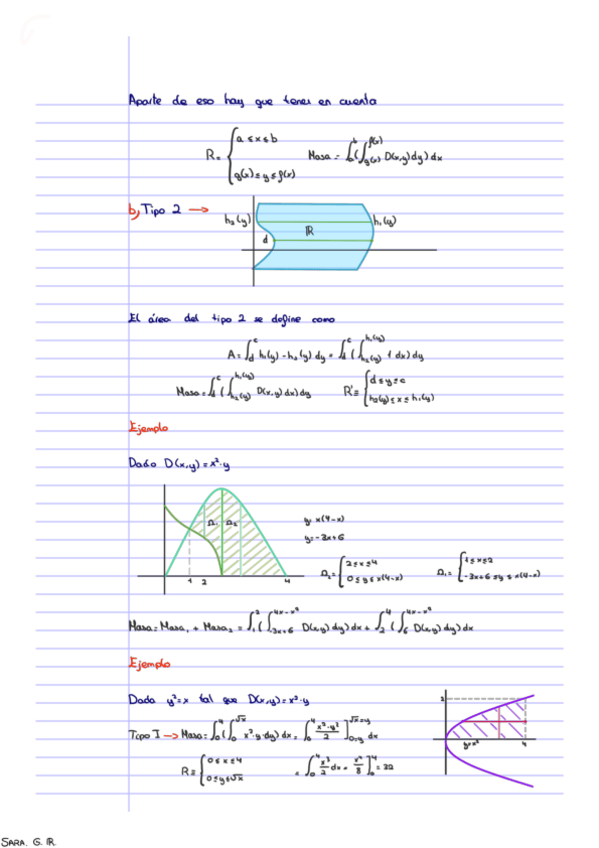 Aparte de eso hay que tener en cuenta
R = { a ≤ x ≤ b
g(x) ≤ y ≤ f(x)
Masa = ∫_a^b (∫_{g(x)}^{f(x)} D(x,y) dy) dx
b) Tipo 2 →
h₂(y) h₁(y)
R
d
El área del tipo 2 se define como
A = ∫_d^c h₁(y) - h₂(y) dy = ∫_d^c (∫_{h₂(y)}^{h₁(y)} 1 dx) dy
Masa = ∫_d^c (∫_{h₂(y)}^{h₁(y)} D(x,y) dx) dy R = { d ≤ y ≤ c
h₂(y) ≤ x ≤ h₁(y)
Ejemplo
Dado D(x,y) = x²·y
Ω₁ Ω₂
y = x(4-x)
y = -3x+6
1 2 4
Ω₂ = { 2 ≤ x ≤ 4
0 ≤ y ≤ x(4-x)
Ω₁ = { 1 ≤ x ≤ 2
-3x+6 ≤ y ≤ x(4-x)
Masa = Masa₁ + Masa₂ = ∫_1^2 (∫_{-3x+6}^{4x-x²} D(x,y) dy) dx + ∫_2^4 (∫_0^{4x-x²} D(x,y) dy) dx
Ejemplo
Dada y² = x tal que D(x,y) = x²·y
Tipo I → Masa = ∫_0^4 (∫_0^{√x} x²·y·dy) dx = ∫_0^4 x²·y²/2 ]_{0=y}^{√x=y} dx
R = { 0 ≤ x ≤ 4
0 ≤ y ≤ √x
= ∫_0^4 x³/2 dx = x⁴/8 ]_0^4 = 32
2
4
SARA. G. R.